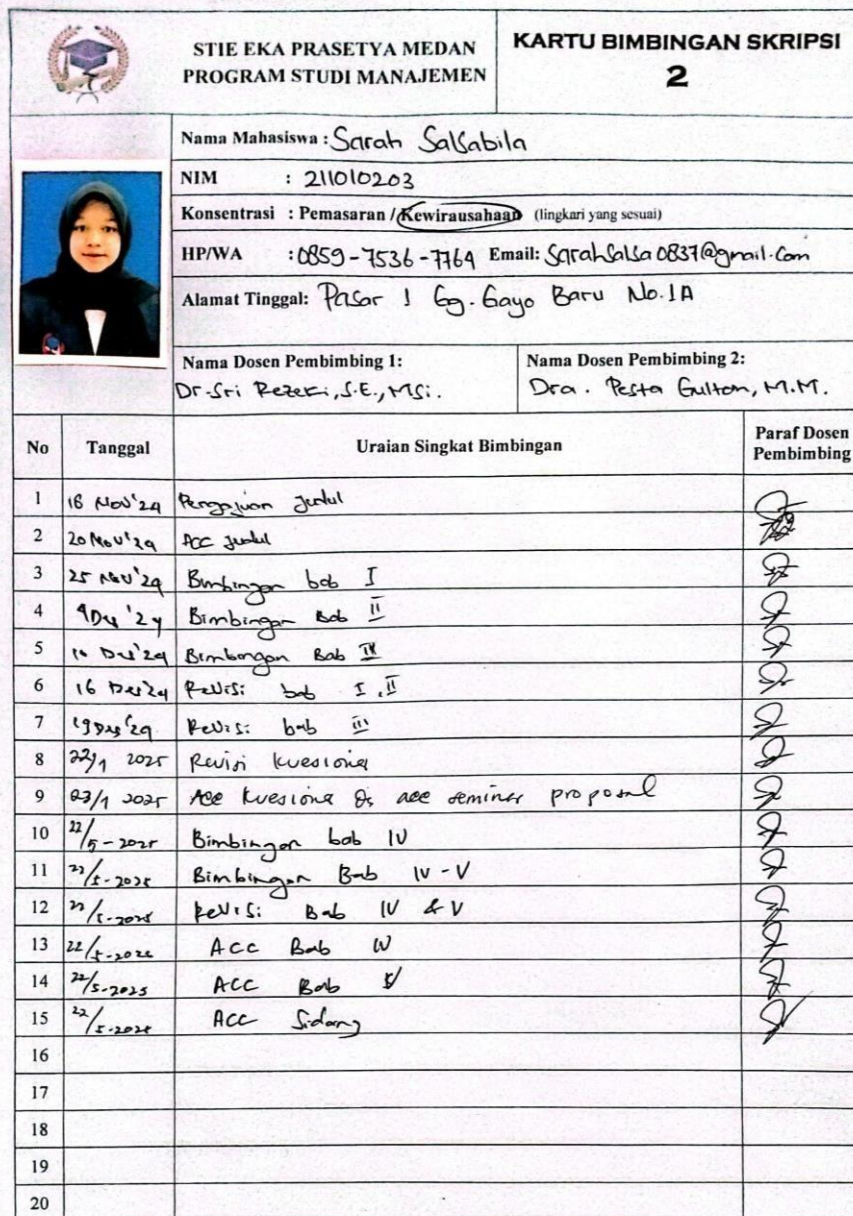 STIE EKA PRASETYA MEDAN
PROGRAM STUDI MANAJEMEN
KARTU BIMBINGAN SKRIPSI
2
Nama Mahasiswa : Sarah Salsabila
NIM : 211010203
Konsentrasi : Pemasaran / Kewirausahaan (lingkari yang sesuai)
HP/WA : 0859-7536-7764 Email: Sarahsalsa0837@gmail.com
Alamat Tinggal: Pasar 1 Gg. Gayo Baru No.1A
Nama Dosen Pembimbing 1:
Dr. Sri Rezeki, S.E., MSi.
Nama Dosen Pembimbing 2:
Dra. Pesta Gultom, M.M.
No Tanggal Uraian Singkat Bimbingan Paraf Dosen Pembimbing
1 18 Nov'24 Pengajuan Judul
2 20 Nov'24 ACC Judul
3 25 Nov'24 Bimbingan bab I
4 9 Des'24 Bimbingan Bab II
5 Des'24 Bimbingan Bab
6 16 Des'24 Revisi bab I, II
7 19 Des'24 Revisi bab III
8 22/1 2025 Revisi kuesioner
9 23/1 2025 Acc kuesioner & acc seminar proposal
10 22/5-2025 Bimbingan bab IV
11 22/5-2025 Bimbingan Bab IV-V
12 22/5-2025 Revisi Bab IV & V
13 22/5-2025 ACC Bab IV
14 22/5-2025 ACC Bab V
15 22/5-2025 ACC Sidang
16
17
18
19
20